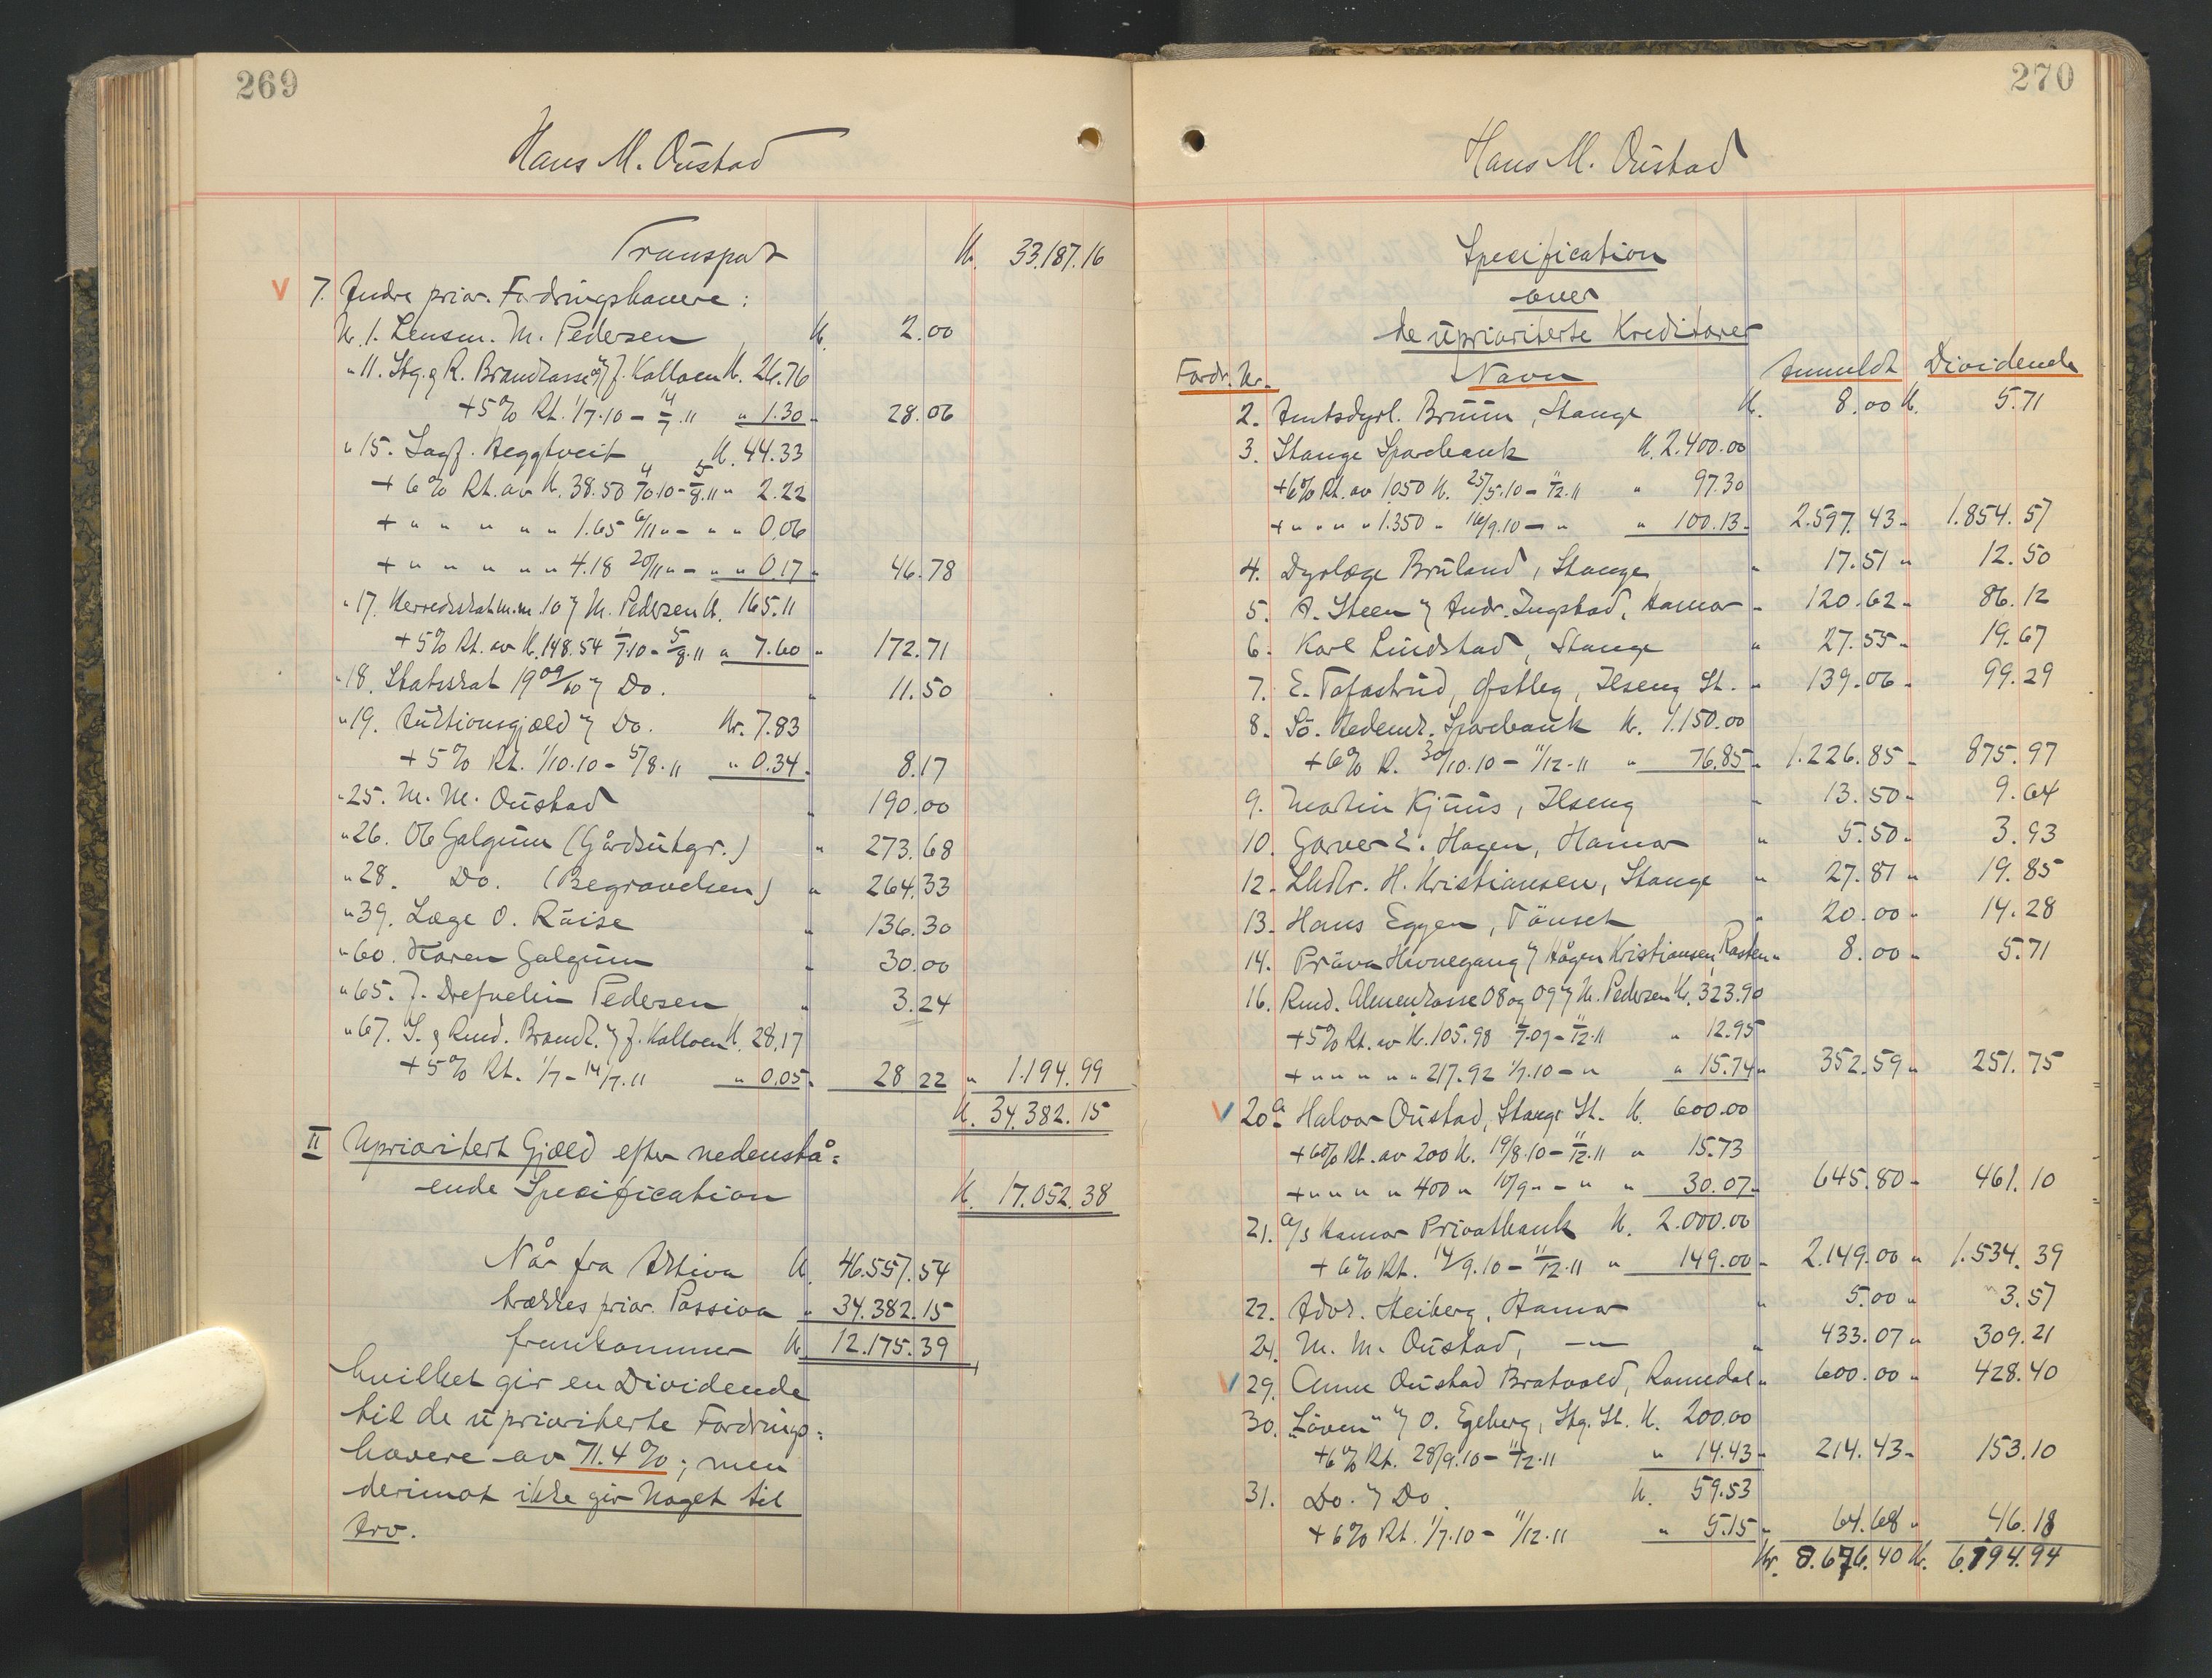 269
Hans M. Oustad
Transport Kr. 33.187.16
V 7. Andre prior. Fordringshavere:
Nr. 1. Lensm. M. Pedersen K. 2.00
" 11. Stg. & R. Brandkasse v/ J. Kolloen K. 26.76
+ 5% Rt. 1/7.10 - 14/7.11 " 1.30 " 28.06
" 15. Sagf. Heggtveit K. 44.33
+ 6% Rt. av K. 38.50 4/10.10 - 5/8.11 " 2.22
+ " " " " " 1.65 6/11 " - " " 0.06
+ " " " " " 4.18 20/11 " - " " 0.17 " 46.78
" 17. Herredsskat m.m. 10 v/ M. Pedersen K. 165.11
+ 5% Rt. av K. 148.54 1/7.10 - 5/8.11 " 7.60 " 172.71
" 18. Statsskat 1909/10 v/ Do. " 11.50
" 19. Auktionsgjæld v/ Do. Kr. 7.83
+ 5% Rt. 1/10.10 - 5/8.11 " 0.34 " 8.17
" 25. M. M. Oustad " 190.00
" 26. Ob Galgum (Gårdsutgr.) " 273.68
" 28. Do. (Begravelsen) " 264.33
" 39. Læge O. Röise " 136.30
" 60. Karen Galgum " 30.00
" 65. J. Drefvelin Pedersen " 3.24
" 67. S. & Rmd. Brandk. v/ J. Kolloen K. 28.17
+ 5% Rt. 1/7 - 14/7.11 " 0.05 " 28.22 " 1.194.99
K. 34.382.15
II Uprioritert Gjæld efter nedenstå=
ende Specification K. 17.052.38
Når fra Aktiva K. 46.557.54
trækkes prior. Passiva " 34.382.15
fremkommer K. 12.175.39
hvilket gir en Dividende
til de uprioriterte Fordrings=
havere av 71.4%; men
derimot ikke gir Noget til
Arv.
270
Hans M. Oustad
Specification
over
de uprioriterte Kreditorer
Fordr. Nr. Navn Anmeldt Dividende
2. Amtsdyrl. Bruun, Stange K. 8.00 K. 5.71
3. Stange Sparebank K. 2.400.00
+ 6% Rt. av 1050 K. 25/5.10 - 11/12.11 " 97.30
+ " " " " 1.350 " 16/9.10 - " " 100.13 " 2.597.43 " 1.854.57
4. Dyrlæge Bruland, Stange " 17.51 " 12.50
5. A. Steen v/ Andr. Ingstad, Hamar " 120.62 " 86.12
6. Karl Lindstad, Stange " 27.55 " 19.67
7. E. Tofastrud, Østleg, Ilseng St. " 139.06 " 99.29
8. Sö. Hedemk. Sparebank K. 1.150.00
+ 6% R. 30/10.10 - 11/12.11 " 76.85 " 1.226.85 " 875.97
9. Martin Kjuus, Ilseng " 13.50 " 9.64
10. Garver E. Hagen, Hamar " 5.50 " 3.93
12. Lhdlr. H. Kristiansen, Stange " 27.81 " 19.85
13. Hans Eggen, Tönset " 20.00 " 14.28
14. Pröven Havnegang v/ Hågen Kristiansen, Rasten " 8.00 " 5.71
16. Rmd. Almenkasse 08 og 09 v/ M. Pedersen Kr. 323.90
+ 5% Rt. av K. 105.98 1/7.09 - 11/12.11 " 12.95
+ " " " " " 217.92 1/7.10 - " " 15.74 " 352.59 " 251.75
V 20a. Halvor Oustad, Stange St. K. 600.00
+ 6% Rt. av 200 K. 19/8.10 - 11/12.11 " 15.73
+ " " " " 400 " 10/9 " - " " 30.07 " 645.80 " 461.10
21. A/s Hamar Privatbank K. 2.000.00
+ 6% Rt. 14/9.10 - 11/12.11 " 149.00 " 2.149.00 " 1.534.39
22. Advk. Heiberg, Hamar " 5.00 " 3.57
24. M. M. Oustad, — " — " 433.07 " 309.21
V 29. Anne Oustad Bratvold, Romedal " 600.00 " 428.40
30. "Löven" v/ O. Egeberg, Stg. St. K. 200.00
+ 6% Rt. 28/9.10 - 11/12.11 " 14.43 " 214.43 " 153.10
31. Do. v/ Do. K. 59.53
+ 6% Rt. 1/7.10 - 11/12.11 " 5.15 " 64.68 " 46.18
Kr. 8.676.40 K. 6.194.94